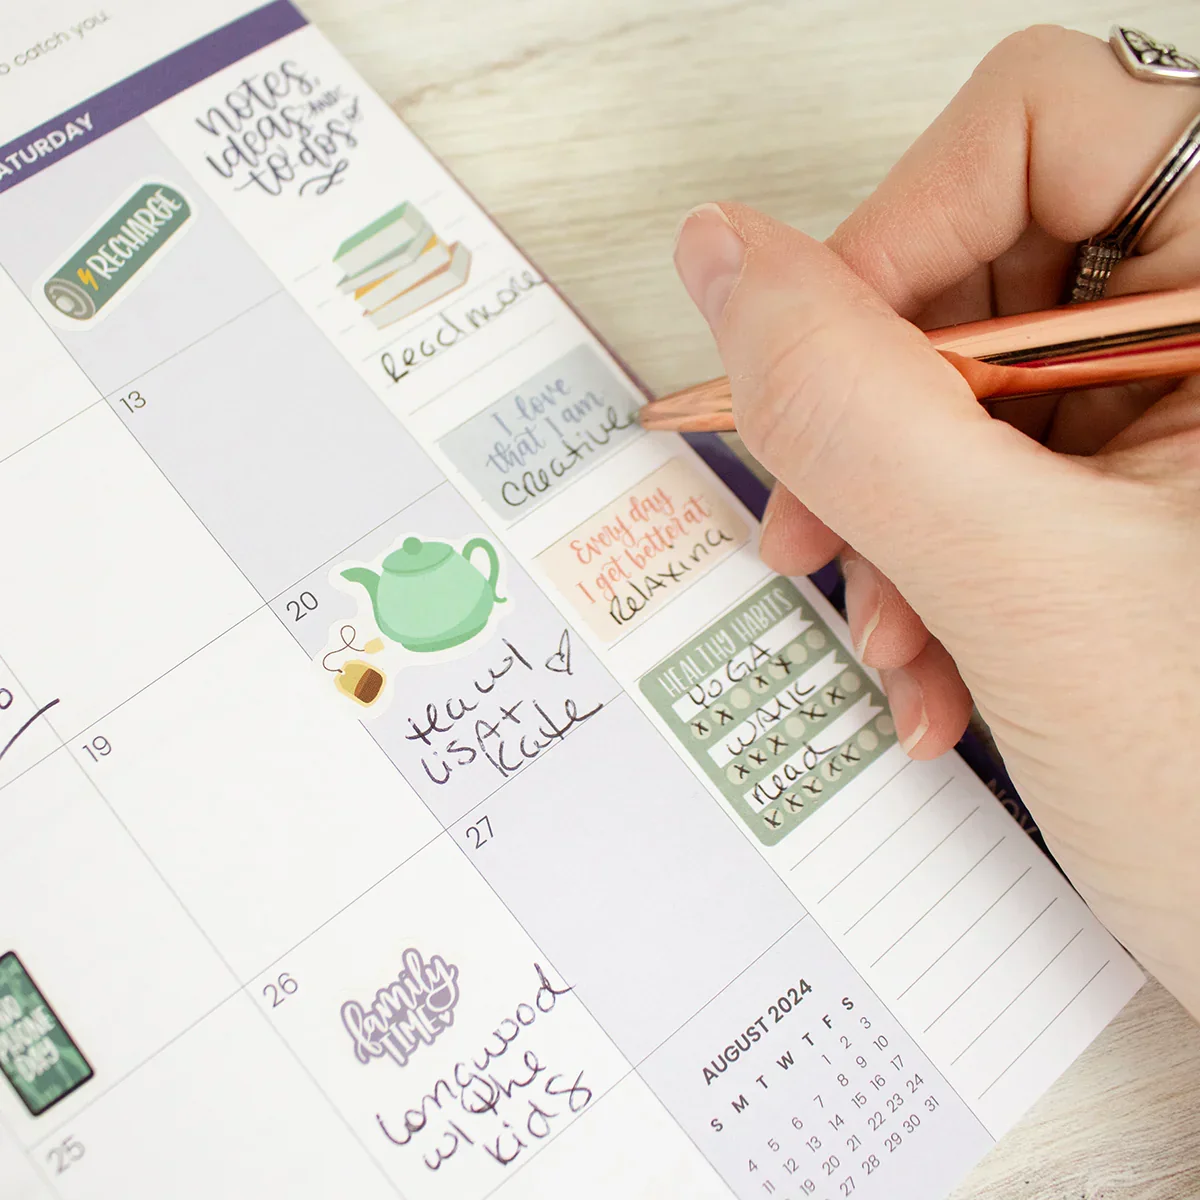 o catch you
ATURDAY
notes,
ideas AND
to-dos
RECHARGE
Read more
I love
that I am
Creative
Every day
I get better at
Relaxing
HEALTHY HABITS
YOGA
x x x x
WALK
x x x x x
Read
x x x x x
13
20
tea w/
LiSA +
Kate
19
27
26
family
TIME
Longwood
w/ the
kids
PHONE
DAY
25
AUGUST 2024
S M T W T F S
1 2 3
4 5 6 7 8 9 10
11 12 13 14 15 16 17
19 20 21 22 23 24
27 28 29 30 31
NOV